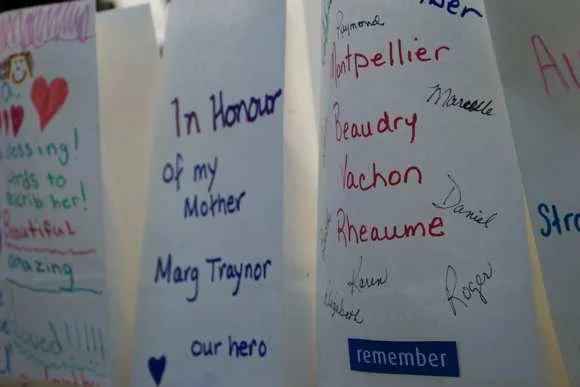 essing!
describ her!
Beautiful
amazing
Loved!!!!!
In Honour
of my
Mother
Marg Traynor
our hero
Raymond
Montpellier
Marcelle
Beaudry
Vachon
Daniel
Rheaume
Karen
Elizabeth
Roger
remember
Stro